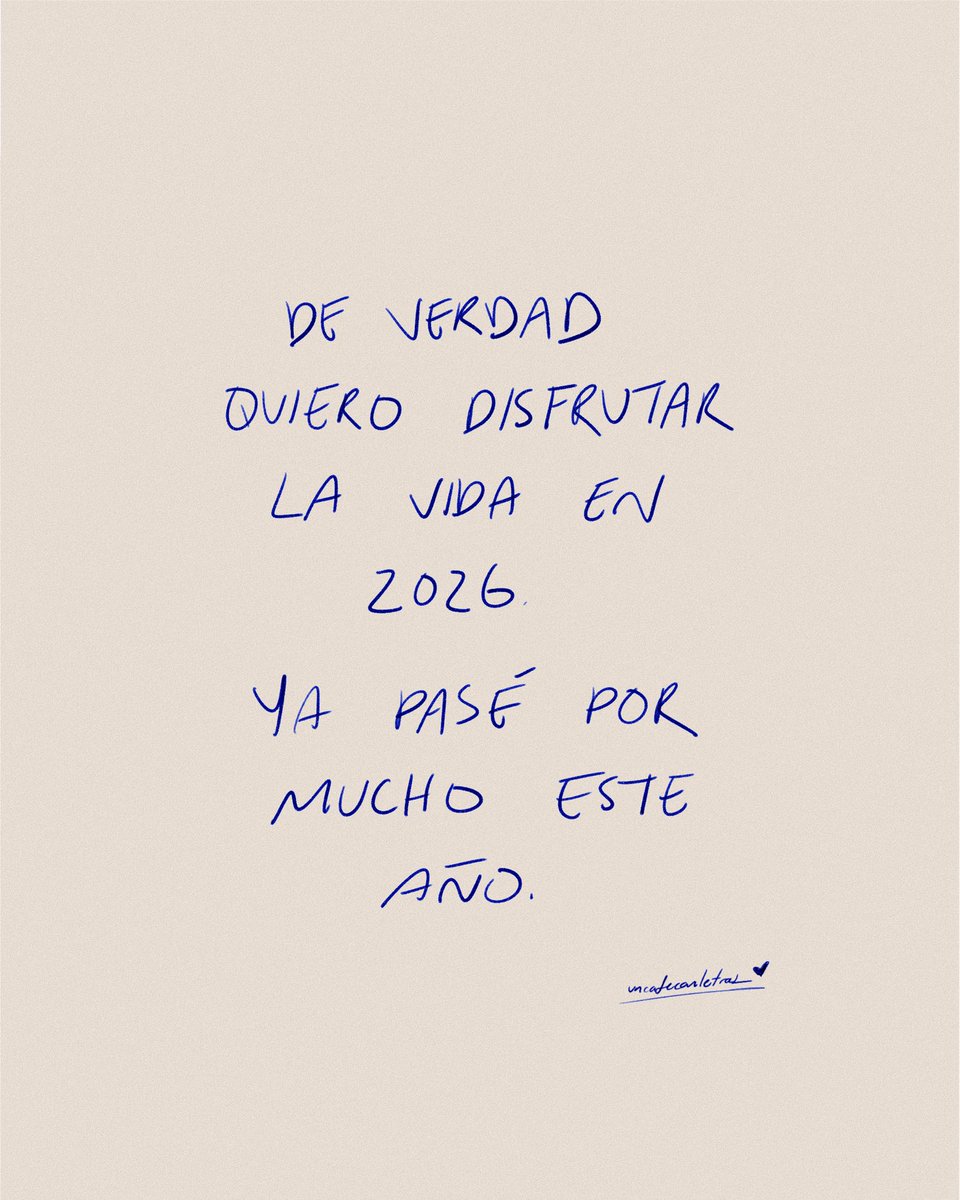 DE VERDAD
QUIERO DISFRUTAR
LA VIDA EN
2026.
YA PASÉ POR
MUCHO ESTE
AÑO.
uncafeconletras